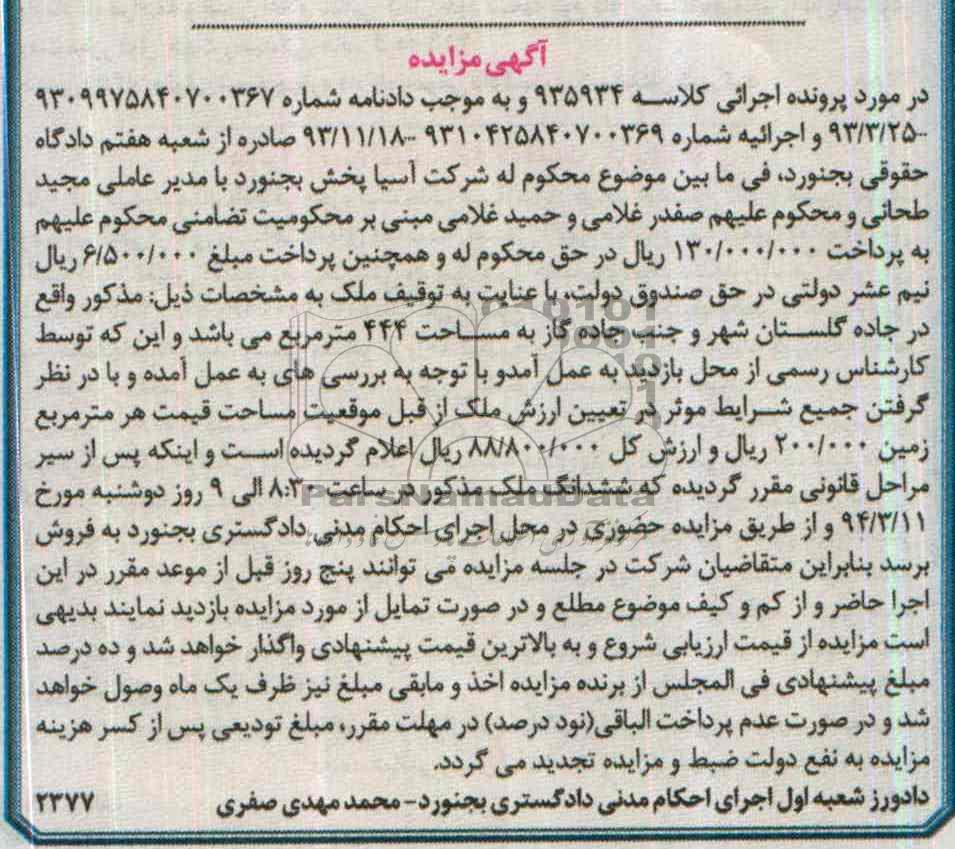 آگهی مزایده
در مورد پرونده اجرائی کلاسه ۹۳۵۹۳۴ و به موجب دادنامه شماره ۹۳۰۹۹۷۵۸۴۰۷۰۰۳۶۷
-۹۳/۳/۲۵ و اجرائیه شماره ۹۳۱۰۴۲۵۸۴۰۷۰۰۳۶۹ -۹۳/۱۱/۱۸ صادره از شعبه هفتم دادگاه
حقوقی بجنورد، فی ما بین موضوع محکوم له شرکت آسیا پخش بجنورد با مدیر عاملی مجید
طحانی و محکوم علیهم صفدر غلامی و حمید غلامی مبنی بر محکومیت تضامنی محکوم علیهم
به پرداخت ۱۳۰/۰۰۰/۰۰۰ ریال در حق محکوم له و همچنین پرداخت مبلغ ۶/۵۰۰/۰۰۰ ریال
نیم عشر دولتی در حق صندوق دولت، با عنایت به توقیف ملک به مشخصات ذیل: مذکور واقع
در جاده گلستان شهر و جنب جاده گاز به مساحت ۴۴۴ مترمربع می باشد و این که توسط
کارشناس رسمی از محل بازدید به عمل آمدو با توجه به بررسی های به عمل آمده و با در نظر
گرفتن جمیع شرایط موثر در تعیین ارزش ملک از قبل موقعیت مساحت قیمت هر مترمربع
زمین ۲۰۰/۰۰۰ ریال و ارزش کل ۸۸/۸۰۰/۰۰۰ ریال اعلام گردیده است و اینکه پس از سیر
مراحل قانونی مقرر گردیده که ششدانگ ملک مذکور در ساعت ۸:۳۰ الی ۹ روز دوشنبه مورخ
ParsNamadData
۹۴/۳/۱۱ و از طریق مزایده حضوری در محل اجرای احکام مدنی دادگستری بجنورد به فروش
برسد بنابراین متقاضیان شرکت در جلسه مزایده می توانند پنج روز قبل از موعد مقرر در این
اجرا حاضر و از کم و کیف موضوع مطلع و در صورت تمایل از مورد مزایده بازدید نمایند بدیهی
است مزایده از قیمت ارزیابی شروع و به بالاترین قیمت پیشنهادی واگذار خواهد شد و ده درصد
مبلغ پیشنهادی فی المجلس از برنده مزایده اخذ و مابقی مبلغ نیز ظرف یک ماه وصول خواهد
شد و در صورت عدم پرداخت الباقی(نود درصد) در مهلت مقرر، مبلغ تودیعی پس از کسر هزینه
مزایده به نفع دولت ضبط و مزایده تجدید می گردد.
دادورز شعبه اول اجرای احکام مدنی دادگستری بجنورد- محمد مهدی صفری ۲۳۷۷